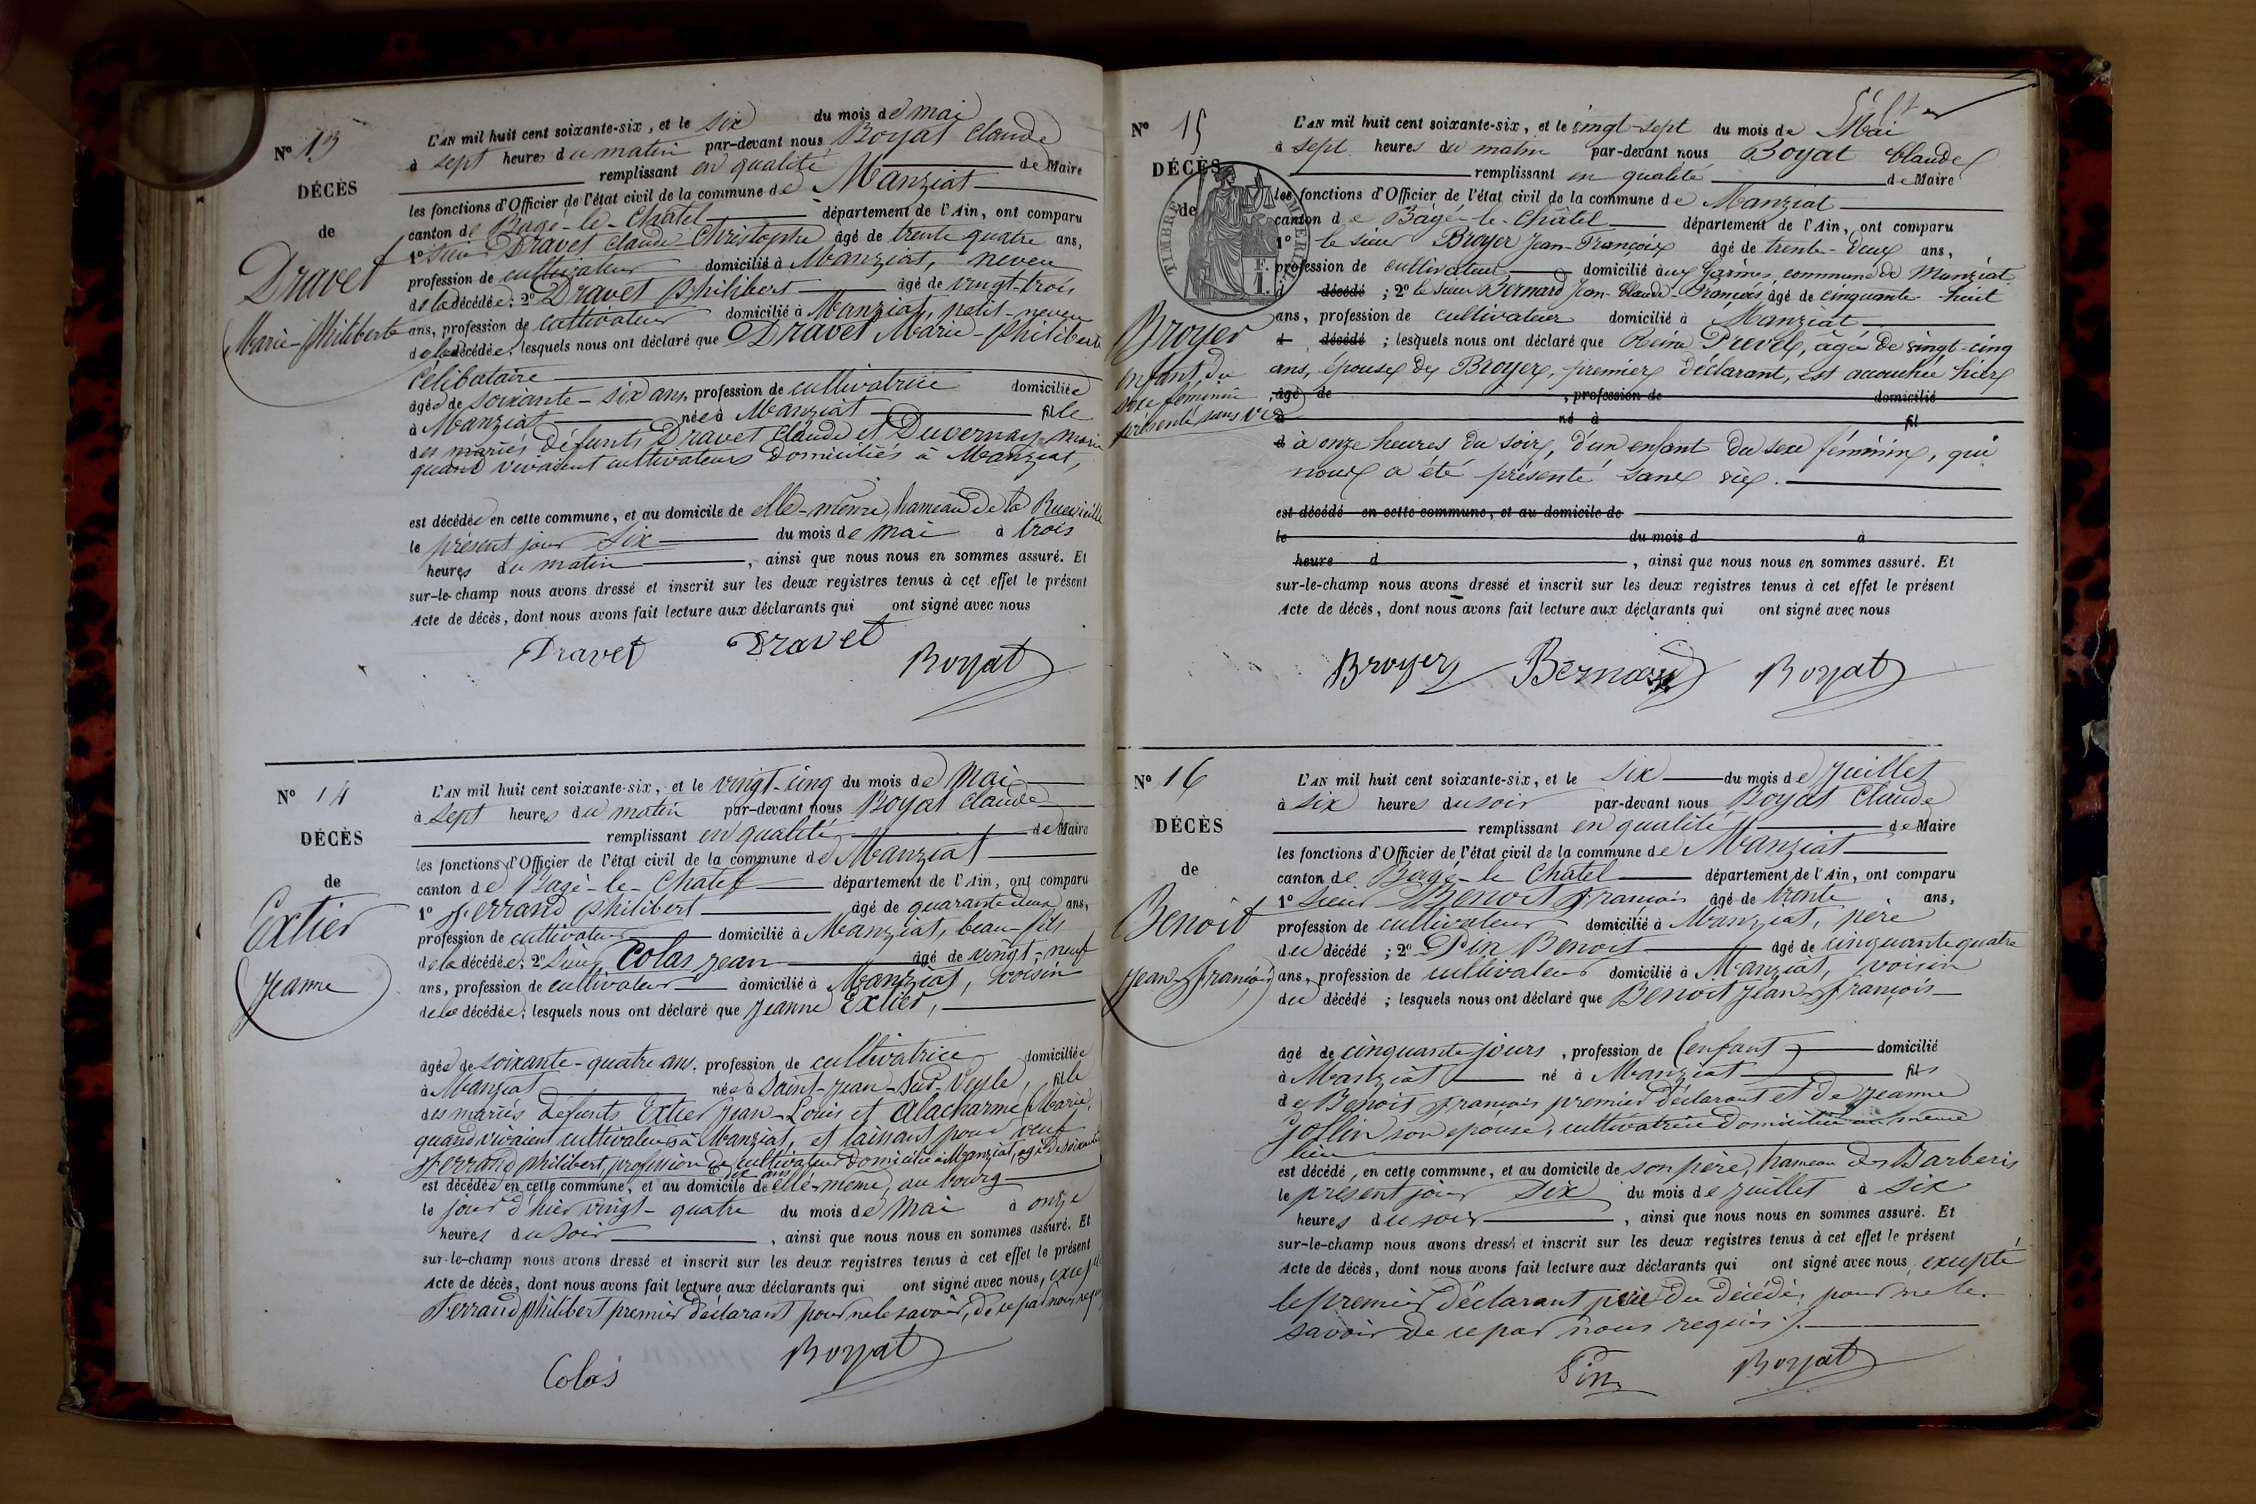 N° 13
DÉCÈS
de
Dravet
Marie-Philiberte
L'AN mil huit cent soixante-six, et le six du mois de mai
à sept heures du matin par-devant nous Boyat Claude
remplissant en qualité de Maire
les fonctions d'Officier de l'état civil de la commune de Manziat
canton de Bagé-le-Châtel département de l'Ain, ont comparu
1° Sieur Dravet Claude-Christophe âgé de trente quatre ans,
profession de cultivateur domicilié à Manziat, neveu
de la décédée; 2° Dravet Philibert âgé de vingt-trois
ans, profession de cultivateur domicilié à Manziat, petit-neveu
de la décédée; lesquels nous ont déclaré que Dravet Marie-Philiberte
célibataire
âgée de soixante-six ans, profession de cultivatrice domiciliée
à Manziat née à Manziat fille
des mariés défunts Dravet Claude et Duvernay Marie
quand vivaient cultivateurs domiciliés à Manziat,
est décédée en cette commune, et au domicile de elle-même, hameau de la Rue vieille
le présent jour six du mois de mai à trois
heures du matin, ainsi que nous nous en sommes assuré. Et
sur-le-champ nous avons dressé et inscrit sur les deux registres tenus à cet effet le présent
Acte de décès, dont nous avons fait lecture aux déclarants qui ont signé avec nous
Dravet Dravet Boyat
N° 14
DÉCÈS
de
Extier
Jeanne
L'AN mil huit cent soixante-six, et le vingt-cinq du mois de Mai
à sept heures du matin par-devant nous Boyat Claude
remplissant en qualité de Maire
les fonctions d'Officier de l'état civil de la commune de Manziat
canton de Bagé-le-Chatel département de l'Ain, ont comparu
1° Ferrand Philibert âgé de quarante deux ans,
profession de cultivateur domicilié à Manziat, beau-fils
de la décédée; 2° Sieur Colas Jean âgé de vingt-neuf
ans, profession de cultivateur domicilié à Manziat, voisin
de la décédée; lesquels nous ont déclaré que Jeanne Extier,
âgée de soixante-quatre ans, profession de cultivatrice domiciliée
à Manziat née à Saint-Jean-Sur-Veyle, fille
des mariés défunts Extier Jean-Louis et Alacharme Marie,
quand vivaient cultivateurs à Manziat, et laissant pour veuf
Ferrand Philibert, profession de cultivateur domicilié à Manziat, âgé de soixante
est décédée en cette commune, et au domicile de elle-même, au bourg
le jour d'hier vingt-quatre du mois de Mai à onze
heures du soir, ainsi que nous nous en sommes assuré. Et
sur-le-champ nous avons dressé et inscrit sur les deux registres tenus à cet effet le présent
Acte de décès, dont nous avons fait lecture aux déclarants qui ont signé avec nous, excepté
Ferrand Philibert premier déclarant pour ne le savoir, de ce par nous requis
Colas Boyat
N° 15
DÉCÈS
de
TIMBRE IMPERIAL
Broyer
enfant du
sexe féminin
présenté sans vie
L'AN mil huit cent soixante-six, et le vingt-sept du mois de Mai
à sept heures du matin par-devant nous Boyat Claude
remplissant en qualité de Maire
les fonctions d'Officier de l'état civil de la commune de Manziat
canton de Bagé-le-Châtel département de l'Ain, ont comparu
1° le sieur Broyer Jean-François âgé de trente-deux ans,
profession de cultivateur domicilié aux commune de Manziat
d décédé; 2° le sieur Bernard Jean-Claude-François âgé de cinquante-huit
ans, profession de cultivateur domicilié à Manziat
d décédé; lesquels nous ont déclaré que Reine âgée de vingt-cinq
ans, épouse de Broyer, premier déclarant, est accouchée hier
âgé de, profession de domicilié
à né à fil
d à onze heures du soir, d'un enfant du sexe féminin, qui
nous a été présenté sans vie.
est décédé en cette commune, et au domicile de
le du mois d à
heure d, ainsi que nous nous en sommes assuré. Et
sur-le-champ nous avons dressé et inscrit sur les deux registres tenus à cet effet le présent
Acte de décès, dont nous avons fait lecture aux déclarants qui ont signé avec nous
Broyer Bernard Boyat
N° 16
DÉCÈS
de
Benoit
Jean-François
L'AN mil huit cent soixante-six, et le six du mois de Juillet
à six heures du soir par-devant nous Boyat Claude
remplissant en qualité de Maire
les fonctions d'Officier de l'état civil de la commune de Manziat
canton de Bagé-le-Chatel département de l'Ain, ont comparu
1° Sieur Benoit François âgé de trente ans,
profession de cultivateur domicilié à Manziat, père
du décédé; 2° Pin Benoit âgé de cinquante quatre
ans, profession de cultivateur domicilié à Manziat, voisin
du décédé; lesquels nous ont déclaré que Benoit Jean-François
âgé de cinquante jours, profession de (enfant) domicilié
à Manziat né à Manziat fils
de Benoit François premier déclarant et de Jeanne
son épouse, cultivatrice domiciliée au même
lieu
est décédé, en cette commune, et au domicile de son père, hameau des Barberis
le présent jour six du mois de juillet à six
heures du soir, ainsi que nous nous en sommes assuré. Et
sur-le-champ nous avons dressé et inscrit sur les deux registres tenus à cet effet le présent
Acte de décès, dont nous avons fait lecture aux déclarants qui ont signé avec nous, excepté
le premier déclarant père du décédé, pour ne le
savoir de ce par nous requis.
Pin Boyat